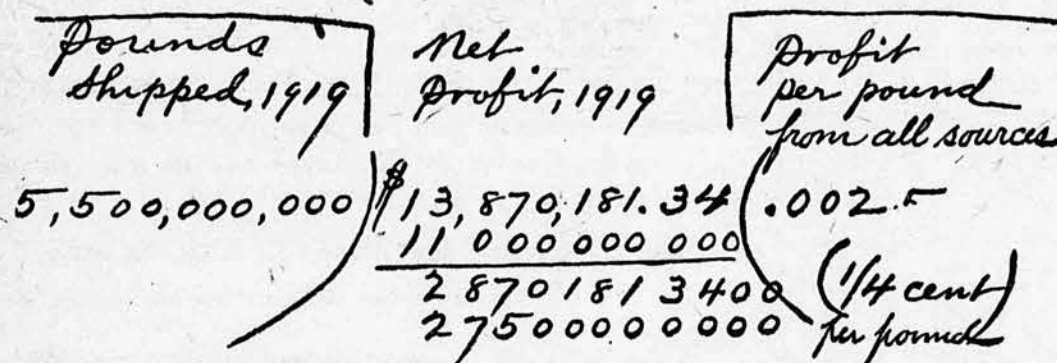 Pounds
Shipped, 1919
Net
Profit, 1919
Profit
per pound
from all sources
5,500,000,000) $13,870,181.34 (.0025
11 000 000 000
2 870 181 3400
2 750 000 0000
(1/4 cent)
per pound